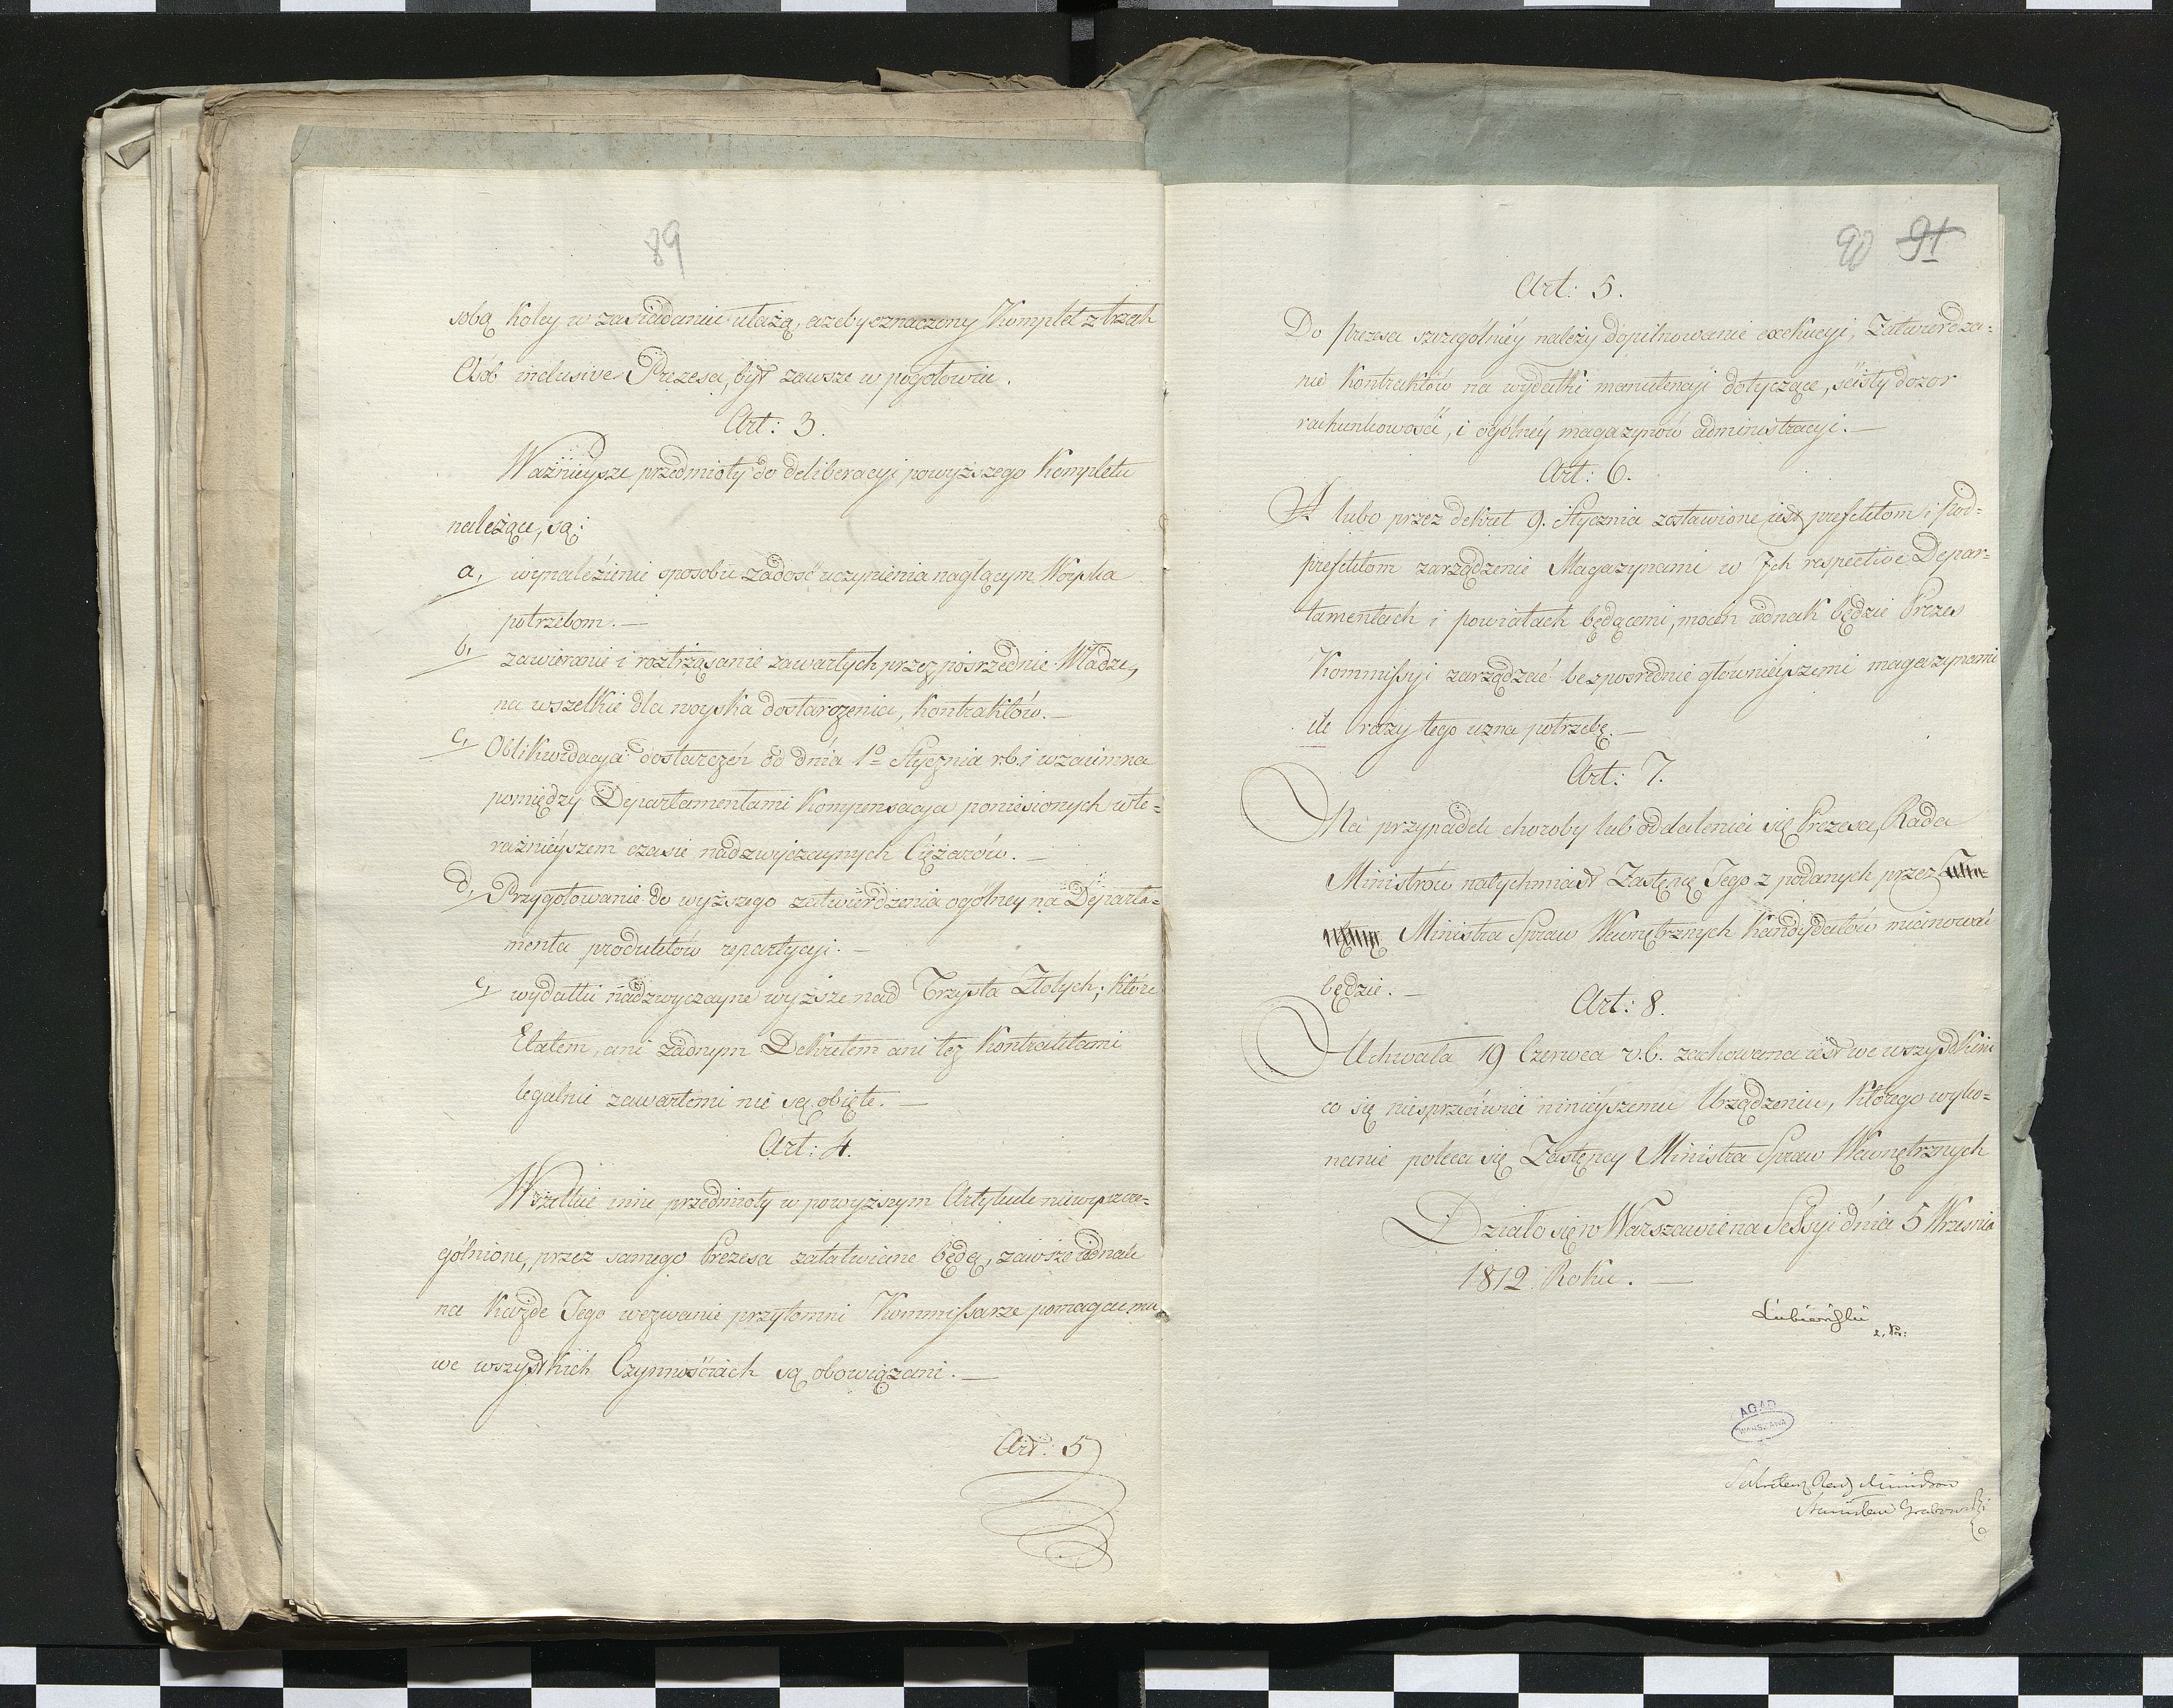 89
sobą koley w zasiadaniu ułożą, ażeby oznaczony Komplet z trzech
Osób inclusive Prezesa, był zawsze w pogotowiu.
Art: 3.
Ważnieysze przedmioty do deliberacyi powyższego Kompletu
należące, są:
a, wynaleźienie sposobu zadosć uczynienia naglącym Woyska
potrzebom. —
b, zawieranie i roztrząsanie zawartych przez posrzednie Władze,
na wszelkie dla woyska dostarczenia, kontraktów. —
c, Oblikwidacya dostarczeń od dnia 1º Stycznia r.b. i wzaiemna
pomiędzy Departamentami Kompensacya poniesionych w te=
raźnieyszem czasie nadzwyczaynych Ciężarów. —
d, Przygotowanie do wyższego zatwierdzenia ogólney na Departa=
menta produktów repartycyi. —
e, wydatki nadzwyczayne wyższe nad Trzysta Złotych; które
Etatem, ani żadnym Dekretem ani też Kontraktami
legalnie zawartemi nie są obięte. —
Art: 4.
Wszelkie inne przedmioty w powyższym Artykule niewyszcze=
gólnione, przez samego Prezesa załatwiane będą, zawsze iednak
na każde Jego wezwanie przytomni Kommissarze pomagać mu
we wszystkich Czynnościach są obowiązani. —
Art: 5
90 91
Art: 5.
Do Prezesa szczególniéy należy dopilnowanie exekucyi, Zatwierdza=
nie kontraktów na wydatki manutencyi dotyczące, scisły dozor
rachunkowości, i ogólnéy magazynów administracyi. —
Art: 6.
A lubo przez dekret 9. Stycznia zostawione jest prefektom i Pod=
prefektom zarządzenie Magazynami w Ich respective Depar=
tamentach i powiatach będącemi, mocen iednak będzie Prezes
Kommissyi zarządzać bezposrednie głównieyszemi magazynami
ile razy tego uzna potrzebę. —
Art: 7.
Na przypadek choroby lub oddalenia się Prezesa, Rada
Ministrów natychmiast Zastępcę Jego z podanych przez
Ministra Spraw Wewnętrznych Kandydatów mianować
będzie. —
Art: 8.
Uchwała 19 Czerwca r.b. zachowana iest we wszystkim
co się niesprzeciwia ninieyszemu Urządzeniu, którego wyko=
nanie poleca się Zastępcy Ministra Spraw Wewnętrznych
Działo się w Warszawie na Sessyi dnia 5 Wrzesnia
1812 Roku. —
Łubieński
AGAD
WARSZAWA
Sekretarz Rady Ministrów
Stanisław Grabowski